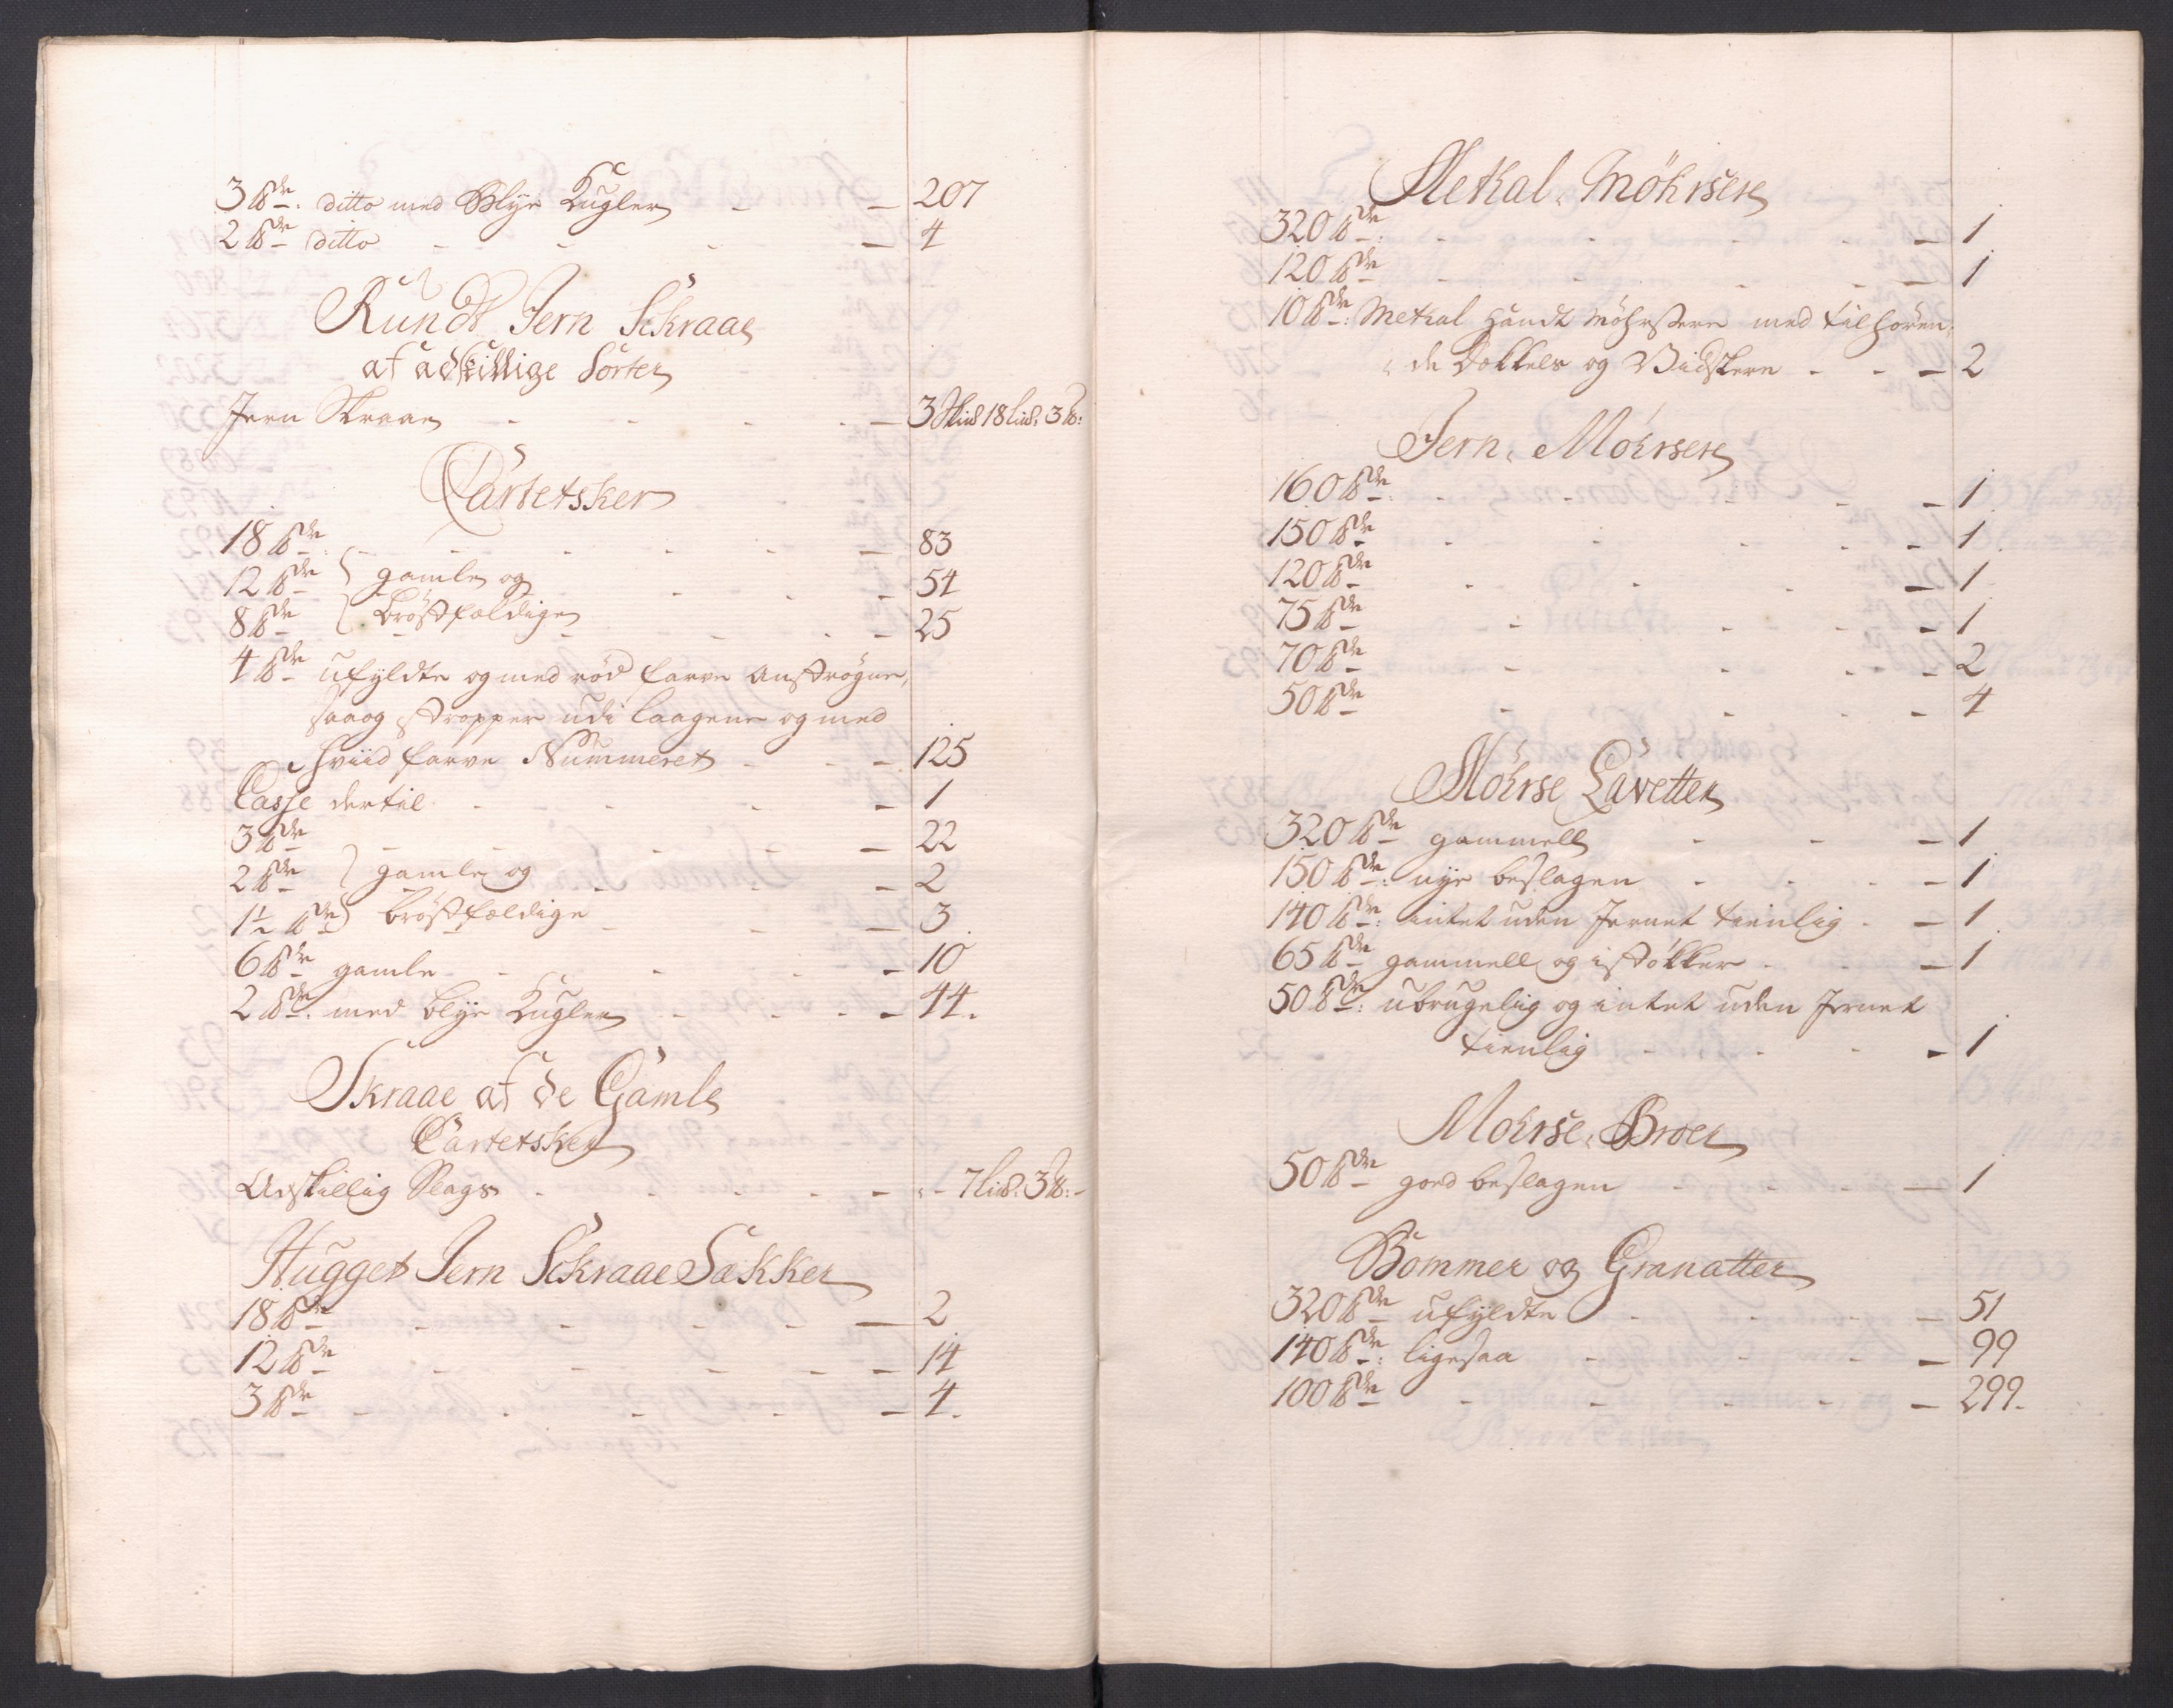 3 ℔de: ditto med Blye Kugler - - 207
2 ℔de ditto - - - - 4
Rundt Jern Schraae
af adskillige Sorter
Jern Skraae - - - - 3 Sk℔ 18 Lis℔: 3 ℔:
Cartetsker
18 ℔de: - - - - - 83
12 ℔de } gamle og - - - 54
8 ℔de } brøstfældige - - - 25
4 ℔de ufyldte og med rød farve anstrøgne,
saa og stropper udi laagene og med
hviid farve Nummeret - - - 125
Casse dertil - - - - 1
3 ℔de - - - - 22
2 ℔de } gamle og - - - 2
1½ ℔de } brøstfældige - - 3
6 ℔de gamle - - - - 10
2 ℔de: med blye Kugler - - - 44.
Skraae af de Gamle
Cartetsker
Adskillig Slags - - - - - 7 Lis℔: 3 ℔: -
Hugget Jern Schraae Sækker
18 ℔de - - - - 2
12 ℔de - - - - - 14
3 ℔de - - - - - 4.
Metal Möhrsere
320 ℔de: - - - - 1
120 ℔de - - - - 1
10 ℔de: Metal Handt Möhrsere med tilhören-
de Dækkels og Vidskere - - - 2
Jern Möhrsere
160 ℔de: - - - - 1
150 ℔de - - - - - 1
120 ℔de - - - - 1
75 ℔de - - - - 1
70 ℔de - - - - 2
50 ℔de - - - - 4
Möhrse Lavetter
320 ℔de gammell - - - 1
150 ℔de: nye beslagen - - - - 1
140 ℔de: intet uden Jernet tienlig - - 1
65 ℔de gammell og istökker - - - 1
50 ℔de: ubrugelig og intet uden Jernet
tienlig - - - - 1
Mohrse Broer
50 ℔de goed beslagen - - - - 1
Bommer og Granatter
320 ℔de ufyldte - - - - 51
140 ℔de: ligesaa - - - - 99
100 ℔de - - - - - 299.